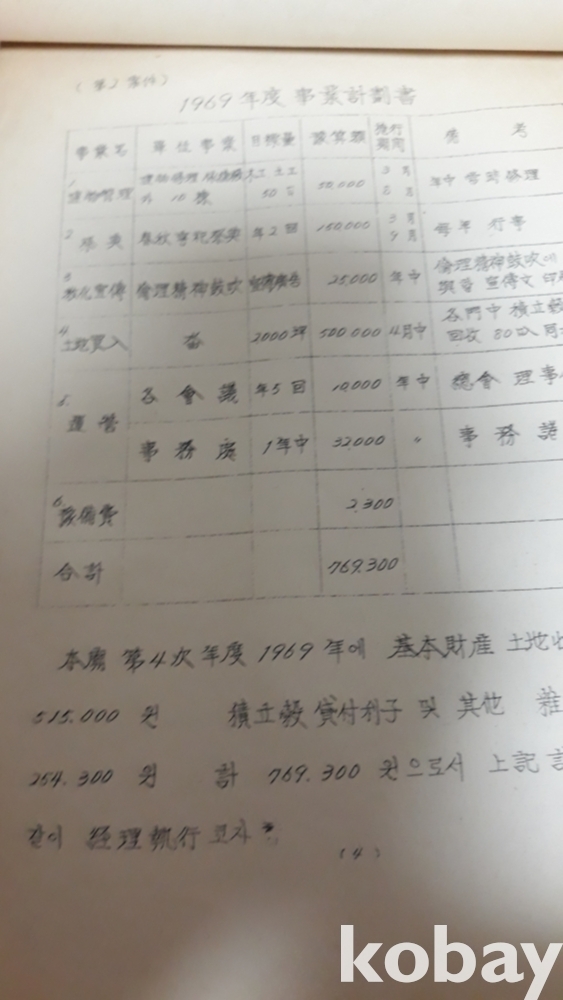 (第2案件)
1969年度 事業計劃書
事業名 單位事業 目標量 豫算額 施行期間 備考
1 建物管理 外 10棟 50 50,000 3月 年中 常時修理
2 祭典 春秋享祀祭典 年2回 150,000 3月 9月 每年 行事
3 敎化宣傳 倫理精神鼓吹 25,000 年中 倫理精神鼓吹에
宣傳文 印刷
4 土地買入 畓 2000坪 500,000 4月中 各門中 積立穀
回收 80叺
5 運營 各會議 年5回 10,000 年中 總會 理事
事務 1年中 32,000 〃 事務
6 豫備費 2,300
合計 769,300
第4次 年度 1969年에 基本財産 土地
515,000 원 積立穀 貸付利子 및 其他 雜
254,300 원 計 769,300 원으로서 上記
같이 經理執行 코자 함
(4)
kobay